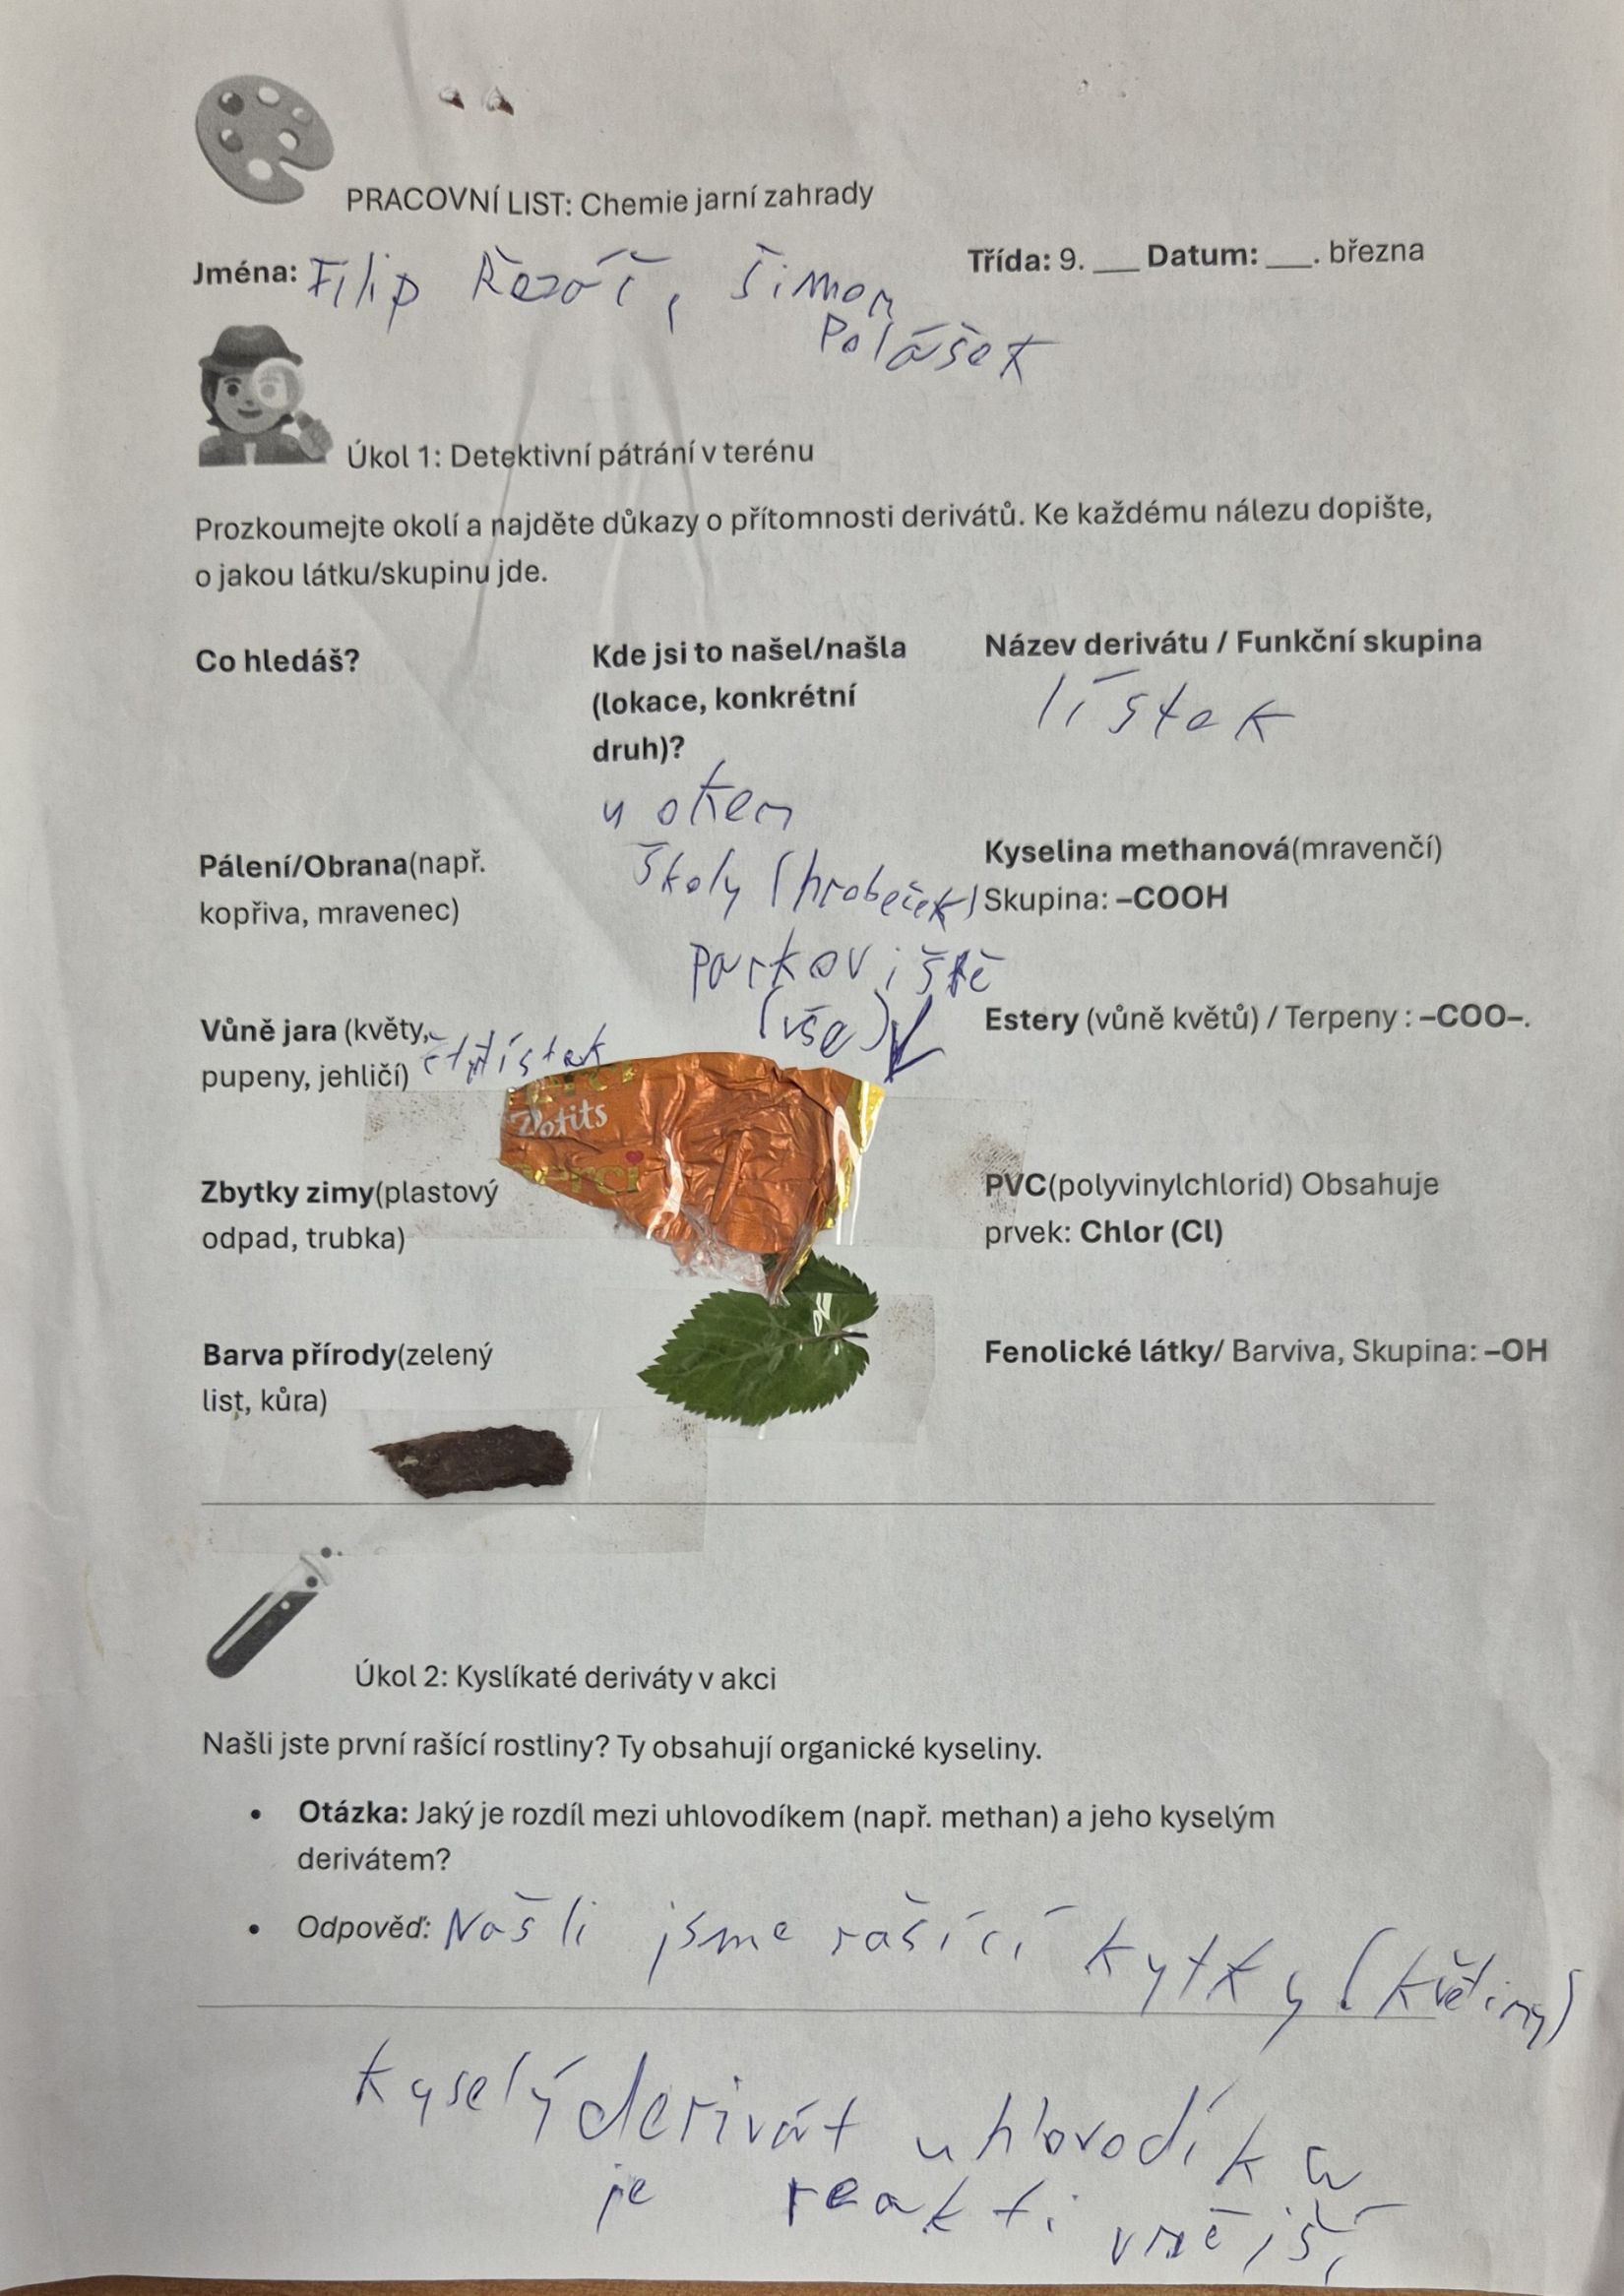 PRACOVNÍ LIST: Chemie jarní zahrady
Jména: Filip Řezáč, Šimon
Polášek
Třída: 9. ___ Datum: ___. března
Úkol 1: Detektivní pátrání v terénu
Prozkoumejte okolí a najděte důkazy o přítomnosti derivátů. Ke každému nálezu dopište,
o jakou látku/skupinu jde.
Co hledáš?
Kde jsi to našel/našla
(lokace, konkrétní
druh)?
Název derivátu / Funkční skupina
lístek
u oken
školy (hrobeček)
Pálení/Obrana(např.
kopřiva, mravenec)
Kyselina methanová(mravenčí)
Skupina: –COOH
parkoviště
(vše)
Vůně jara (květy,
pupeny, jehličí)
Estery (vůně květů) / Terpeny : –COO–.
Petits
merci
Zbytky zimy(plastový
odpad, trubka)
PVC(polyvinylchlorid) Obsahuje
prvek: Chlor (Cl)
Barva přírody(zelený
list, kůra)
Fenolické látky/ Barviva, Skupina: –OH
Úkol 2: Kyslíkaté deriváty v akci
Našli jste první rašící rostliny? Ty obsahují organické kyseliny.
• Otázka: Jaký je rozdíl mezi uhlovodíkem (např. methan) a jeho kyselým
derivátem?
• Odpověď: Našli jsme rašící kytky (květiny)
kyselý derivát uhlovodíku
je reaktivnější